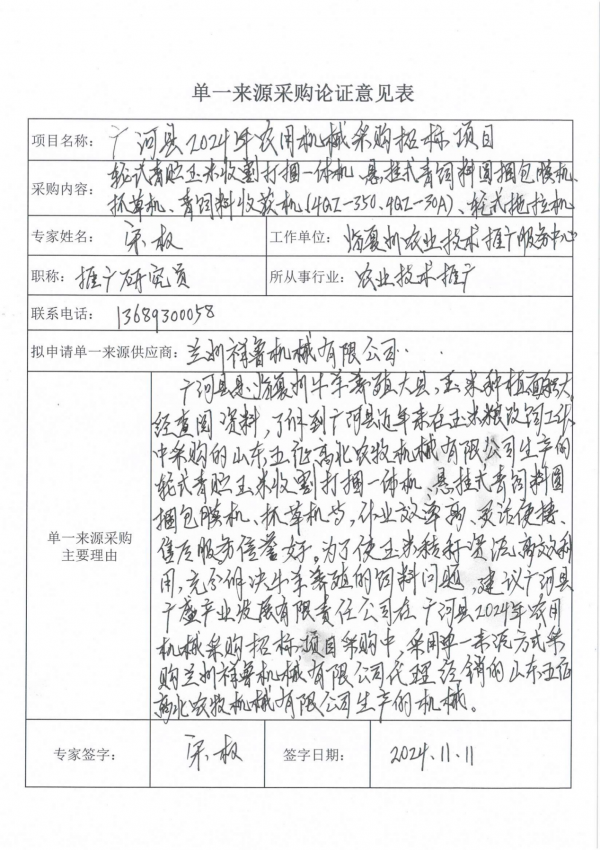 单一来源采购论证意见表
项目名称: 广河县2024年农用机械采购招标项目
采购内容: 轮式青贮玉米收割打捆一体机、悬挂式青饲料圆捆包膜机、
抓草机、青饲料收获机(4QZ-350、4QZ-30A)、轮式拖拉机
专家姓名: 宋权 工作单位: 临夏州农业技术推广服务中心
职称: 推广研究员 所从事行业: 农业技术推广
联系电话: 13689300058
拟申请单一来源供应商: 兰州祥鲁机械有限公司
单一来源采购
主要理由
广河县是临夏州牛羊养殖大县,玉米种植面积大,
经查阅资料,了解到广河县近年来在玉米粮改饲工作
中采购的山东五征高北农牧机械有限公司生产的
轮式青贮玉米收割打捆一体机、悬挂式青饲料圆
捆包膜机、抓草机等,作业效率高、灵活便捷、
售后服务信誉好。为了使玉米秸秆资源高效利
用,充分解决牛羊养殖的饲料问题,建议广河县
广盛产业发展有限责任公司在广河县2024年农用
机械采购招标项目采购中,采用单一来源方式采
购兰州祥鲁机械有限公司代理经销的山东五征
高北农牧机械有限公司生产的机械。
专家签字: 宋权 签字日期: 2024.11.11